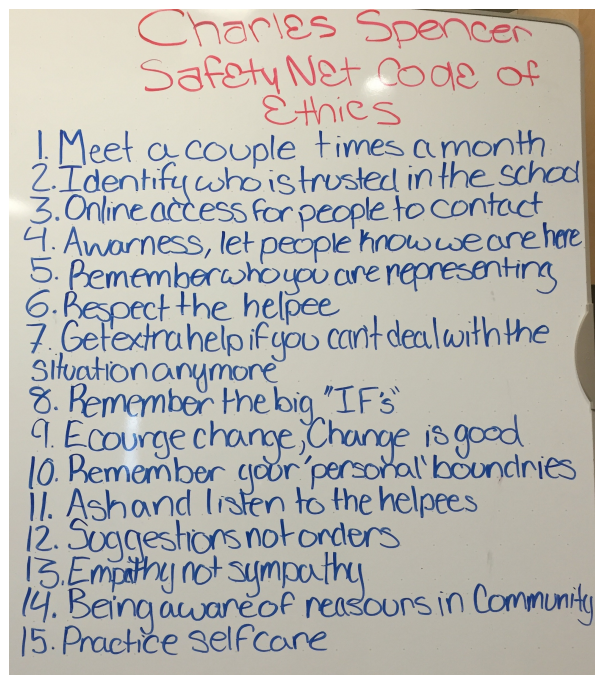 Charles Spencer
Safety Net Code of
Ethics
1. Meet a couple times a month
2. Identify who is trusted in the school
3. Online access for people to contact
4. Awarness, let people know we are here
5. Remember who you are representing
6. Respect the helpee
7. Get extra help if you can't deal with the
situation anymore
8. Remember the big "IF's"
9. Ecourge change, Change is good
10. Remember your 'personal' boundries
11. Ask and listen to the helpees
12. Suggestions not orders
13. Empathy not sympathy
14. Being aware of reasours in Community
15. Practice self care